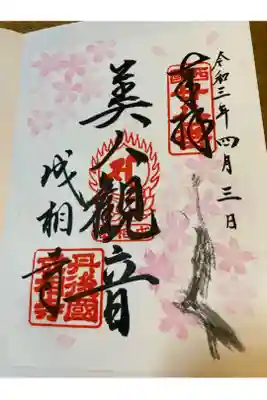 令和三年四月三日
奉拝
美人観音
成相寺
丹後國